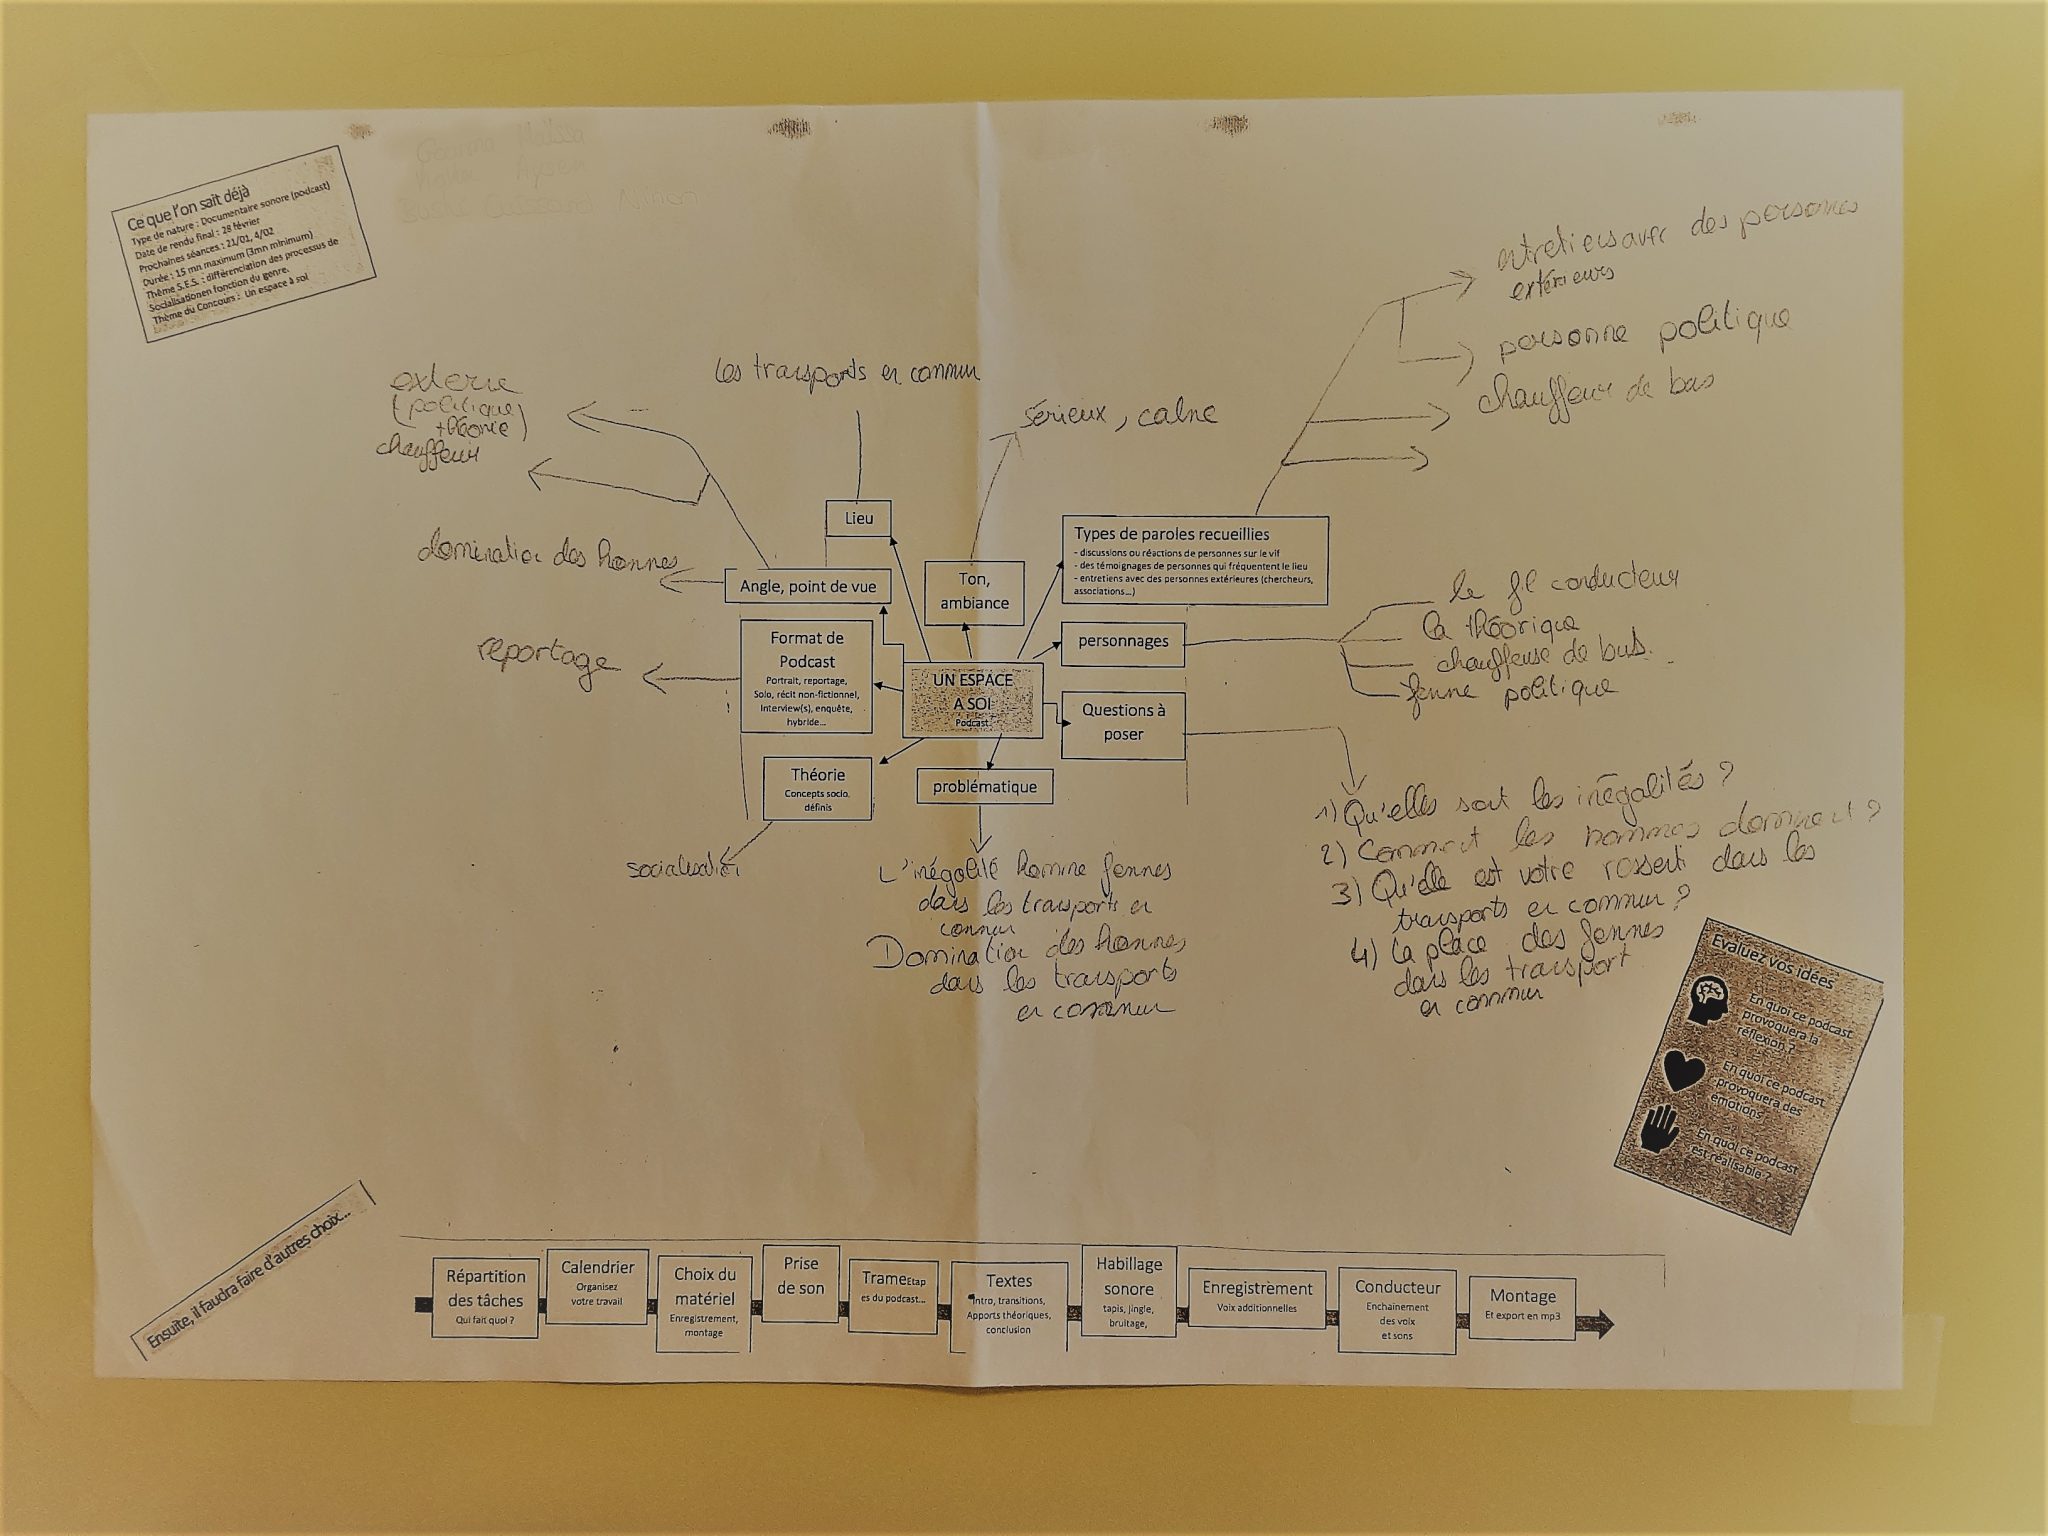 Ce que l'on sait déjà
Type de nature : Documentaire sonore (podcast)
Date de rendu final : 28 février
Prochaines séances : 21/01, 4/02
Durée : 15 mn maximum (3mn minimum)
Thème S.E.S. : différenciation des processus de
Socialisationen fonction du genre.
Thème du Concours : Un espace à soi
Melissa
Aysen
Ninon
entretiens avec des personnes
extérieurs
personne politique
chauffeur de bus
Les transports en commun
externe
(politique
théorie)
chauffeur
sérieux, calme
Lieu
Types de paroles recueillies
- discussions ou réactions de personnes sur le vif
- des témoignages de personnes qui fréquentent le lieu
- entretiens avec des personnes extérieures (chercheurs,
associations...)
domination des hommes
Angle, point de vue
Ton,
ambiance
le fil conducteur
la théorique
chauffeuse de bus.
femme politique
personnages
reportage
Format de
Podcast
Portrait, reportage,
Solo, récit non-fictionnel,
Interview(s), enquête,
hybride...
UN ESPACE
A SOI
Podcast
Questions à
poser
Théorie
Concepts socio.
définis
problématique
socialisation
L'inégalité homme femmes
dans les transports en
commun
Domination des hommes
dans les transports
en commun
1) Qu'elles sont les inégalités ?
2) Comment les hommes dominent ?
3) Qu'elle est votre ressenti dans les
transports en commun ?
4) La place des femmes
dans les transport
en commun
Evaluez vos idées
En quoi ce podcast
provoquera la
réflexion ?
En quoi ce podcast
provoquera des
émotions
En quoi ce podcast
est réalisable ?
Ensuite, il faudra faire d'autres choix...
Répartition
des tâches
Qui fait quoi ?
Calendrier
Organisez
votre travail
Choix du
matériel
Enregistrement,
montage
Prise
de son
TrameEtap
es du podcast...
Textes
Intro, transitions,
Apports théoriques,
conclusion
Habillage
sonore
tapis, jingle,
bruitage,
Enregistrement
Voix additionnelles
Conducteur
Enchainement
des voix
et sons
Montage
Et export en mp3